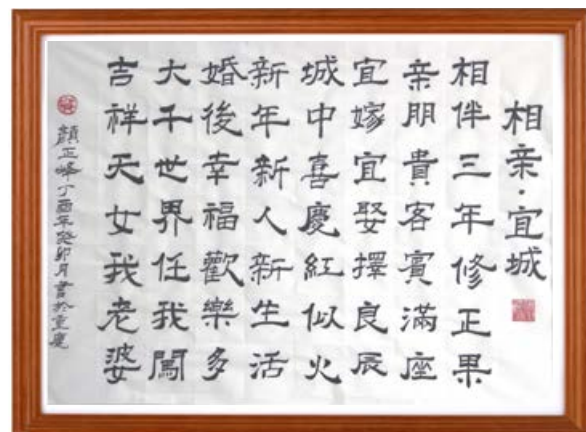 相亲·宜城
相伴三年修正果
亲朋貴客賓滿座
宜嫁宜娶擇良辰
城中喜慶紅似火
新年新人新生活
婚後幸福歡樂多
大千世界任我闖
吉祥天女我老婆
顏正峰丁酉年癸卯月書於重慶